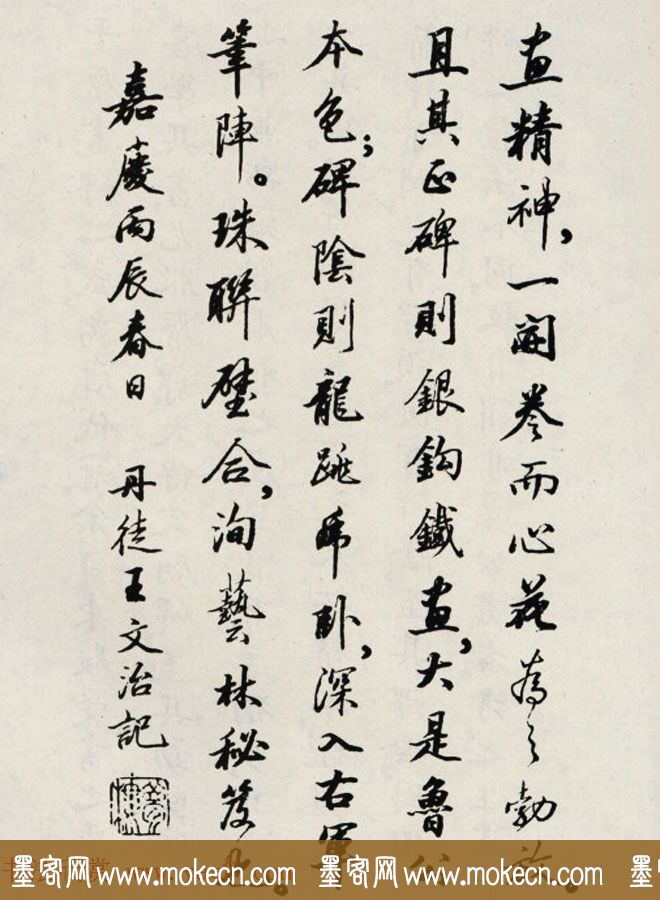 畫精神，一開卷而心花為之勃。
且其正碑則銀鈎鐵畫，大是魯公
本色；碑陰則龍跳虎卧，深入右軍
筆陣。珠聯璧合，洵藝林秘笈也。
嘉慶丙辰春日 丹徒王文治記
墨客网 www.mokecn.com 墨客网 www.mokecn.com 墨客网